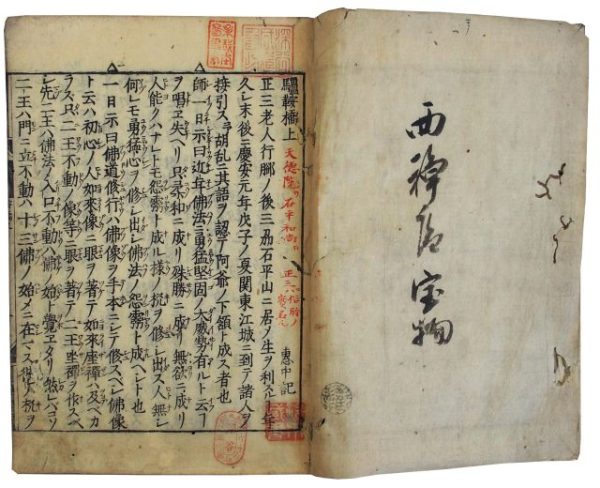 西禅院宝物
驢鞍橋上 天徳院 石平和尚 惠中記
正三老人行脚ノ後三州石平山ニ居ノ生ヲ利スルヿ年
久シ末後ニ慶安元年戊子ノ夏關東江城ニ到テ諸人ヲ
接引スヿ胡乱ニ其語ヲ認テ阿爺ノ下頷ト成ス者也
師一日示曰近年佛法ニ勇猛堅固ノ大威勢有ルト云ヿ
ヲ唱ヱ失ヘリ只柔和ニ成リ殊勝ニ成リ無欲ニ成リ
人能クハナレトモ怨霊ト成ル様ノ機ヲ修シ出ス人無シ
何レモ勇猛心ヲ修シ出シ佛法ノ怨霊ト成ベシト也
一日示曰佛道修行ハ佛像ヲ手本ニシテ修スベシ佛像
ト云ハ初心ノ人如來像ニ眼ヲ著テ如來座禅ハ及ベカ
ラズ只二王不動ノ像等ニ眼ヲ著テ二王坐禅ヲ作スベ
シ先二王ハ佛法ノ入口不動ハ佛ノ始ト覺ヱタリ然レバコソ
二王ハ門ニ立不動ハ十三佛ノ始メニ在マス彼ノ機ヲ